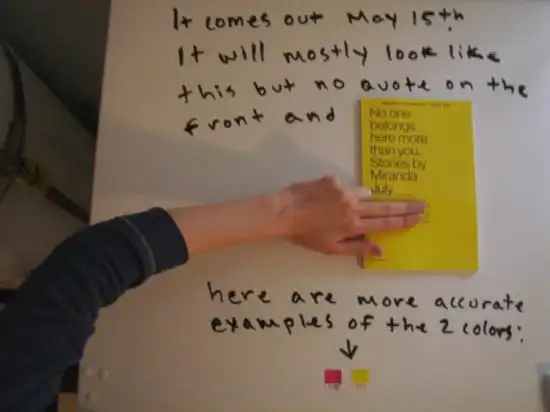 It comes out May 15th.
It will mostly look like
this but no quote on the
front and
No one
belongs
here more
than you.
Stories by
Miranda
July
here are more accurate
examples of the 2 colors: